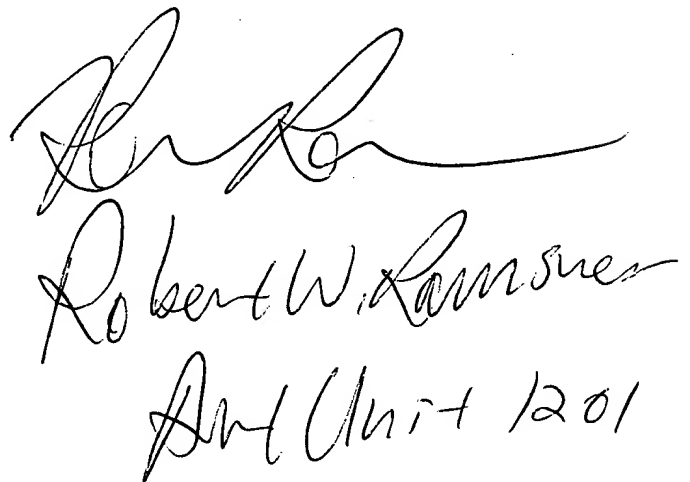 Robert W. Ramsuer
Art Unit 1201